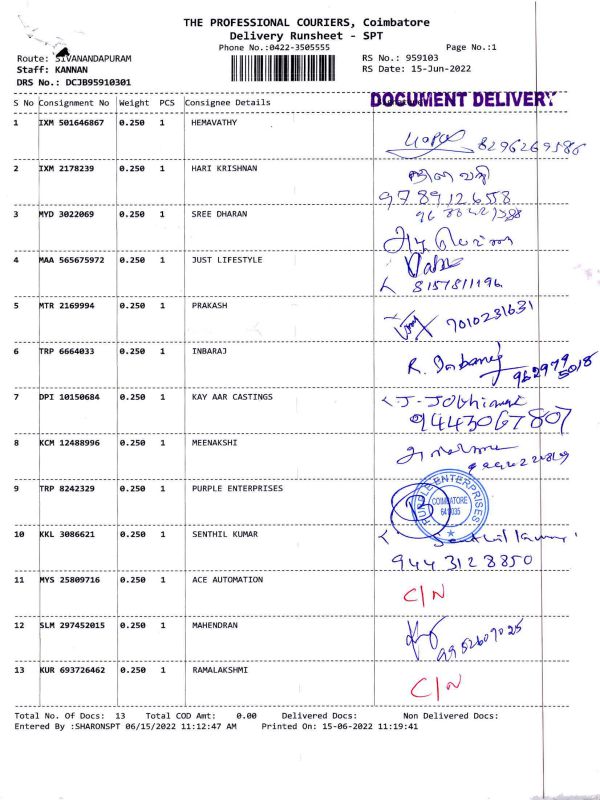 THE PROFESSIONAL COURIERS, Coimbatore
Delivery Runsheet - SPT
Phone No.:0422-3505555
Page No.:1
Route: SIVANANDAPURAM
RS No.: 959103
Staff: KANNAN
RS Date: 15-Jun-2022
DRS No.: DCJB95910301
S No Consignment No Weight PCS Consignee Details
DOCUMENT DELIVERY
1 IXM 501646867 0.250 1 HEMAVATHY
8296269586
2 IXM 2178239 0.250 1 HARI KRISHNAN
9789112658
3 MYD 3022069 0.250 1 SREE DHARAN
4 MAA 565675972 0.250 1 JUST LIFESTYLE
8157811196
5 MTR 2169994 0.250 1 PRAKASH
7010231631
6 TRP 6664033 0.250 1 INBARAJ
R.
962979
5018
7 DPI 10150684 0.250 1 KAY AAR CASTINGS
9443067807
8 KCM 12488996 0.250 1 MEENAKSHI
9 TRP 8242329 0.250 1 PURPLE ENTERPRISES
PURPLE ENTERPRISES
COIMBATORE
641035
10 KKL 3086621 0.250 1 SENTHIL KUMAR
Senthil Kumar
9443128850
11 MYS 25809716 0.250 1 ACE AUTOMATION
C/N
12 SLM 297452015 0.250 1 MAHENDRAN
9952609025
13 KUR 693726462 0.250 1 RAMALAKSHMI
C/N
Total No. Of Docs: 13 Total COD Amt: 0.00 Delivered Docs: Non Delivered Docs:
Entered By :SHARONSPT 06/15/2022 11:12:47 AM Printed On: 15-06-2022 11:19:41